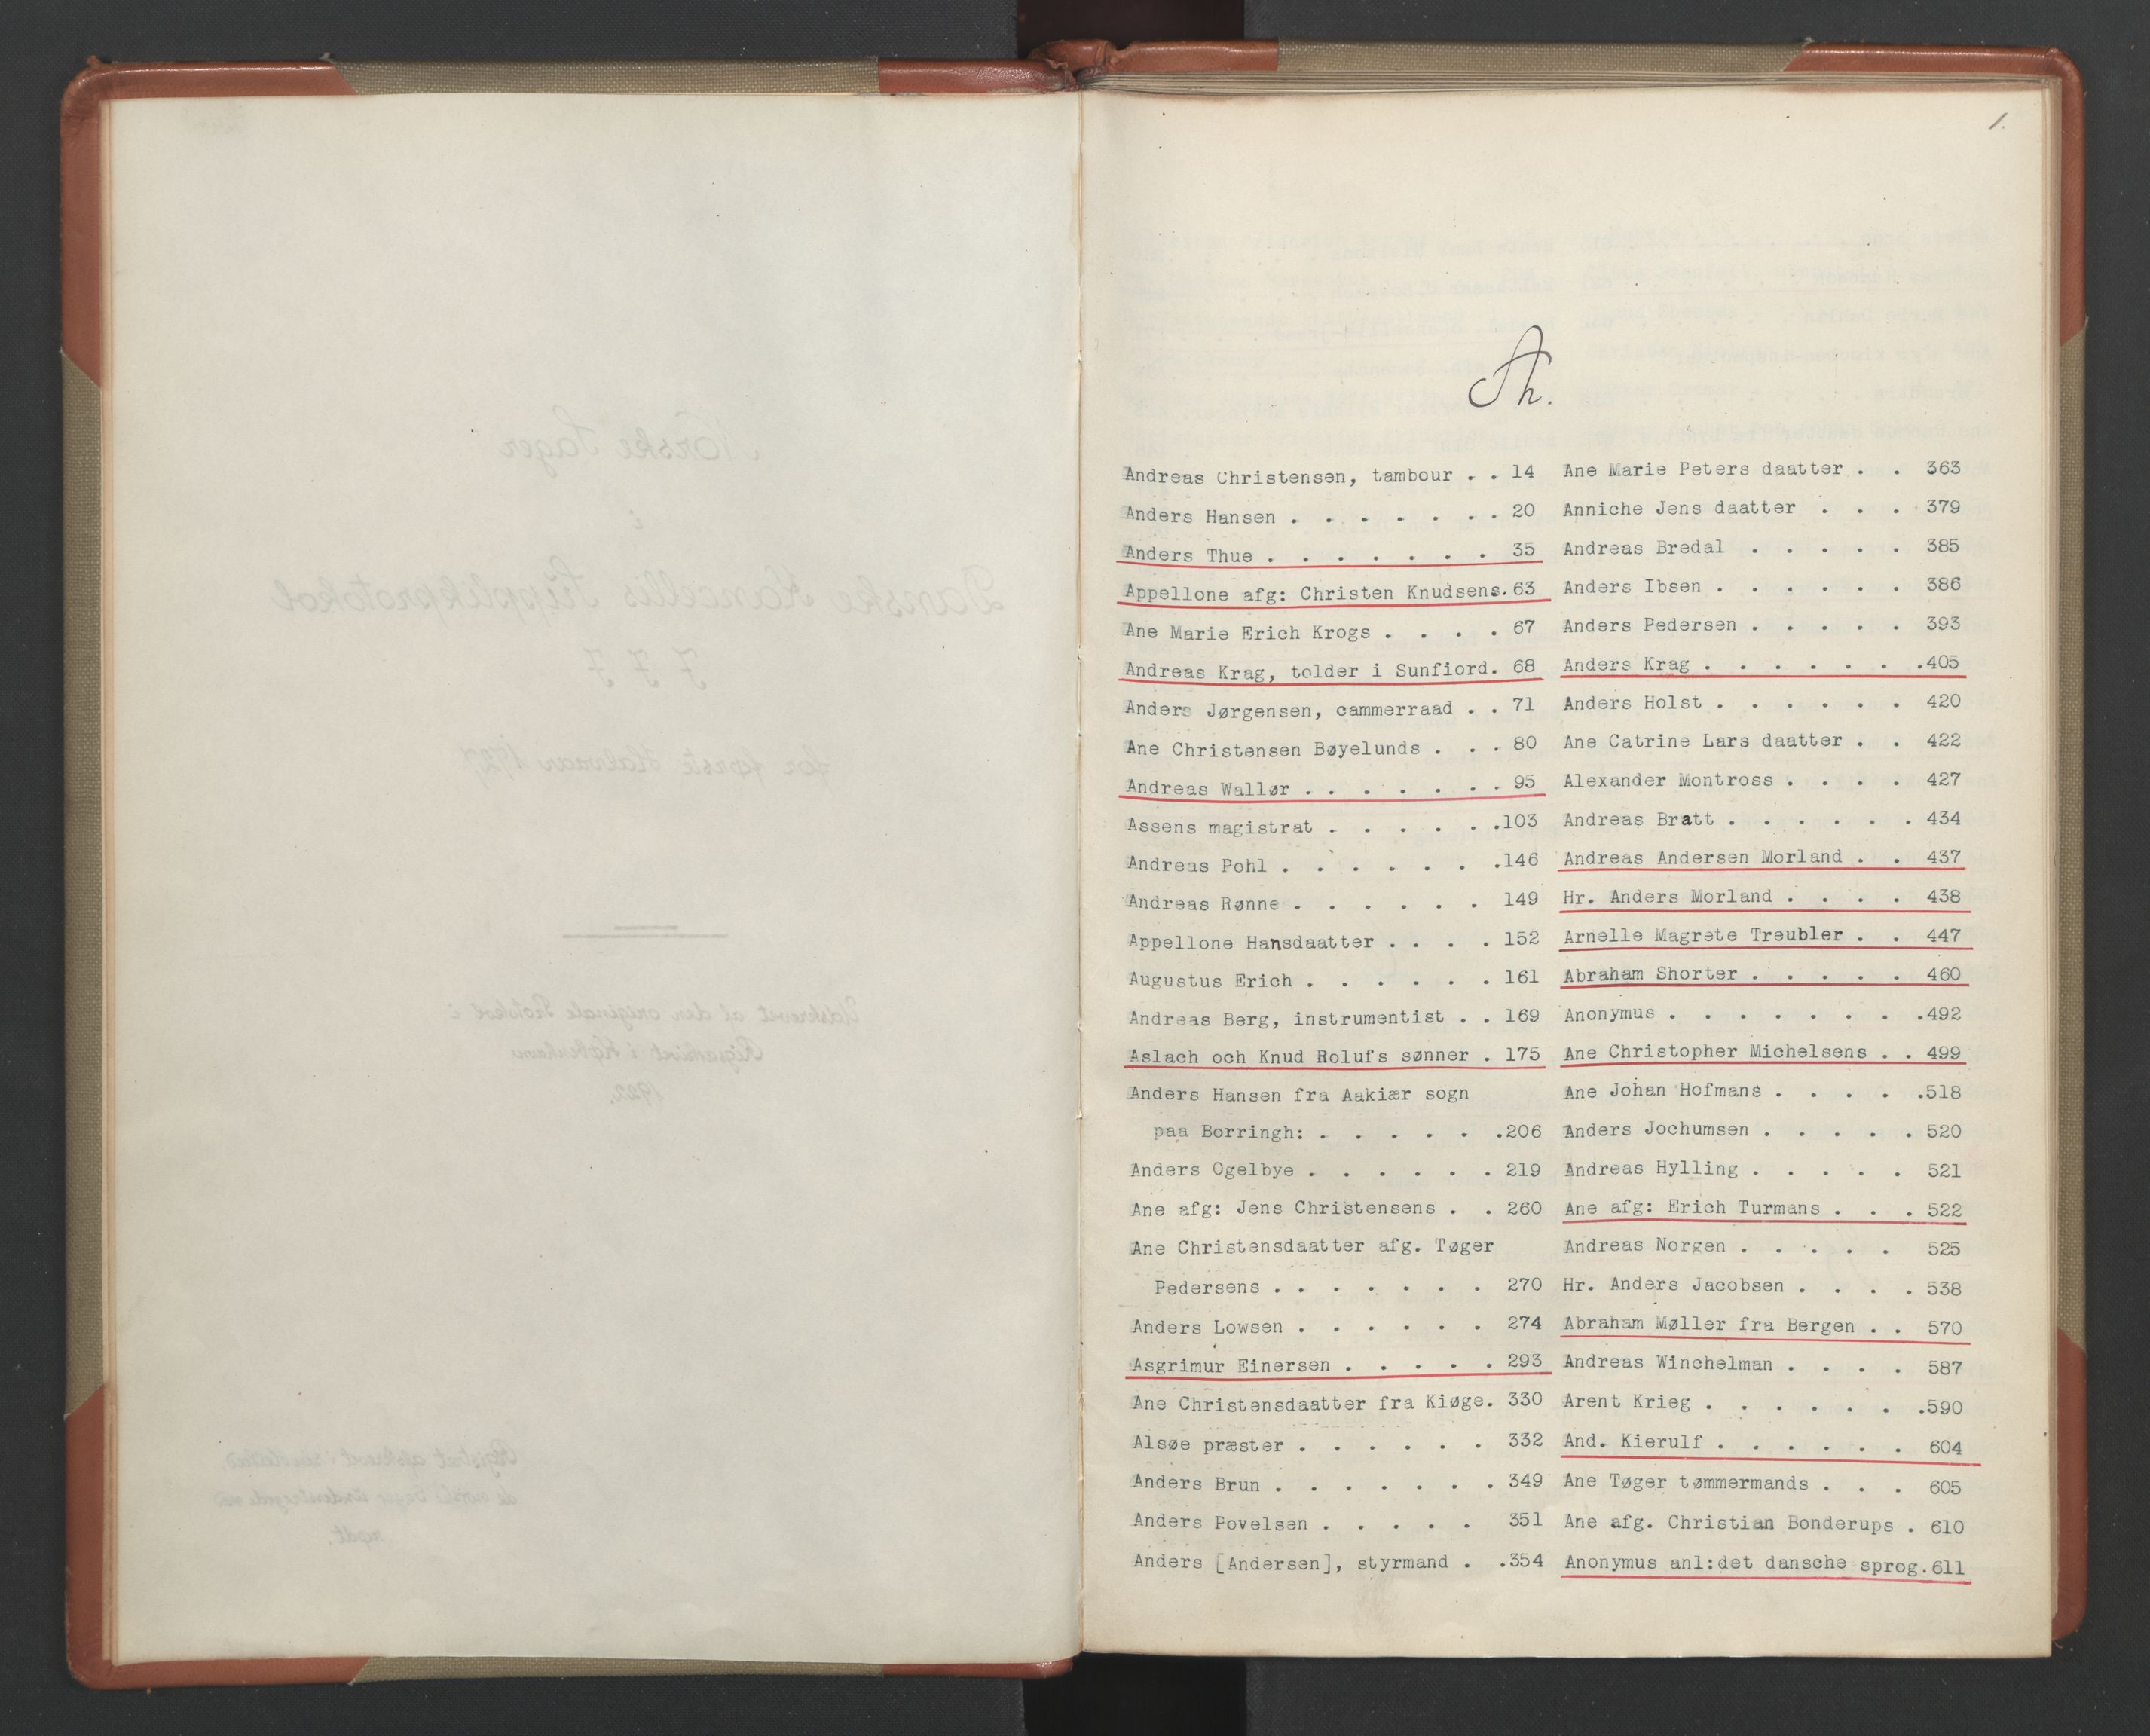 1.
Th.
Andreas Christensen, tambour . . 14
Anders Hansen . . . . . . . . 20
Anders Thue . . . . . . . 35
Appellone afg: Christen Knudsens. 63
Ane Marie Erich Krogs . . . . 67
Andreas Krag, tolder i Sunfiord. 68
Anders Jørgensen, cammerraad . . 71
Ane Christensen Bøyelunds . . . 80
Andreas Wallør . . . . . . . . 95
Assens magistrat . . . . . .103
Andreas Pohl . . . . . . .146
Andreas Rønne . . . . . . 149
Appellone Hansdaatter . . . . 152
Augustus Erich . . . . . . 161
Andreas Berg, instrumentist . . 169
Aslach och Knud Rolufs sønner . 175
Anders Hansen fra Aakiær sogn
paa Borringh: . . . . . .206
Anders Ogelbye . . . . . . 219
Ane afg: Jens Christensens . . 260
Ane Christensdaatter afg. Tøger
Pedersens . . . . . . . 270
Anders Lowsen . . . . . . 274
Asgrimur Einersen . . . . . 293
Ane Christensdaatter fra Kiøge. 330
Alsøe præster . . . . . . 332
Anders Brun . . . . . . . 349
Anders Povelsen . . . . . 351
Anders [Andersen], styrmand . .354
Ane Marie Peters daatter . . 363
Anniche Jens daatter . . . 379
Andreas Bredal . . . . . 385
Anders Ibsen . . . . . . 386
Anders Pedersen . . . . . 393
Anders Krag . . . . . . .405
Anders Holst . . . . . . 420
Ane Catrine Lars daatter . . 422
Alexander Montross . . . . 427
Andreas Bratt . . . . . . 434
Andreas Andersen Morland . . 437
Hr. Anders Morland . . . . 438
Arnelle Magrete Treubler . . 447
Abraham Shorter . . . . . 460
Anonymus . . . . . . . .492
Ane Christopher Michelsens . . 499
Ane Johan Hofmans . . . . .518
Anders Jochumsen . . . . . 520
Andreas Hylling . . . . . 521
Ane afg: Erich Turmans . . . 522
Andreas Norgen . . . . . 525
Hr. Anders Jacobsen . . . . 538
Abraham Møller fra Bergen . . 570
Andreas Winchelman . . . . 587
Arent Krieg . . . . . . .590
And. Kierulf . . . . . . 604
Ane Tøger tømmermands . . . 605
Ane afg. Christian Bonderups . 610
Anonymus anl:det dansche sprog.611